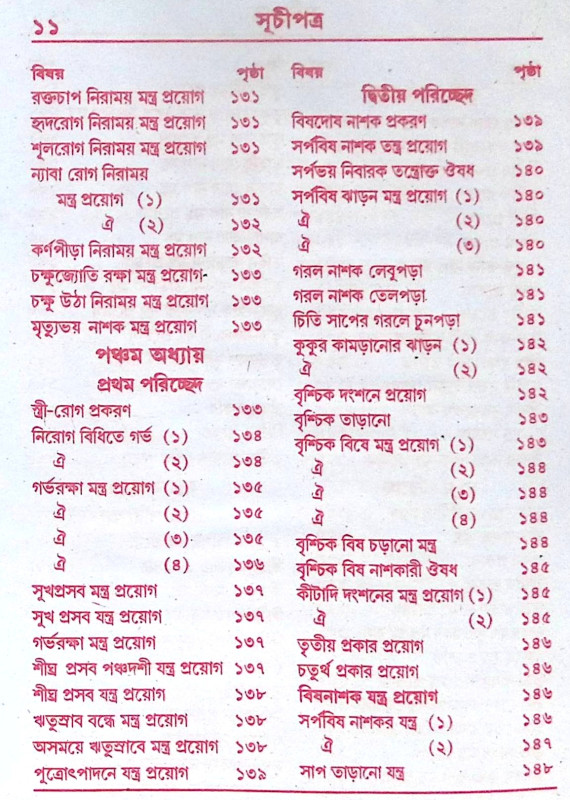 ১১
সূচীপত্র
বিষয় পৃষ্ঠা
রক্তচাপ নিরাময় মন্ত্র প্রয়োগ ১৩১
হৃদরোগ নিরাময় মন্ত্র প্রয়োগ ১৩১
শূলরোগ নিরাময় মন্ত্র প্রয়োগ ১৩১
ন্যাবা রোগ নিরাময়
মন্ত্র প্রয়োগ (১) ১৩১
ঐ (২) ১৩২
কর্ণপীড়া নিরাময় মন্ত্র প্রয়োগ ১৩২
চক্ষুজ্যোতি রক্ষা মন্ত্র প্রয়োগ ১৩৩
চক্ষু উঠা নিরাময় মন্ত্র প্রয়োগ ১৩৩
মৃত্যুভয় নাশক মন্ত্র প্রয়োগ ১৩৩
পঞ্চম অধ্যায়
প্রথম পরিচ্ছেদ
স্ত্রী-রোগ প্রকরণ ১৩৩
নিরোগ বিধিতে গর্ভ (১) ১৩৪
ঐ (২) ১৩৪
গর্ভরক্ষা মন্ত্র প্রয়োগ (১) ১৩৫
ঐ (২) ১৩৫
ঐ (৩) ১৩৫
ঐ (৪) ১৩৬
সুখপ্রসব মন্ত্র প্রয়োগ ১৩৭
সুখ প্রসব যন্ত্র প্রয়োগ ১৩৭
গর্ভরক্ষা মন্ত্র প্রয়োগ ১৩৭
শীঘ্র প্রসব পঞ্চদশী যন্ত্র প্রয়োগ ১৩৭
শীঘ্র প্রসব যন্ত্র প্রয়োগ ১৩৮
ঋতুস্রাব বন্ধে মন্ত্র প্রয়োগ ১৩৮
অসময়ে ঋতুস্রাবে মন্ত্র প্রয়োগ ১৩৮
পুত্রোৎপাদনে যন্ত্র প্রয়োগ ১৩৯
বিষয় পৃষ্ঠা
দ্বিতীয় পরিচ্ছেদ
বিষদোষ নাশক প্রকরণ ১৩৯
সর্পবিষ নাশক তন্ত্র প্রয়োগ ১৩৯
সর্পভয় নিবারক তন্ত্রোক্ত ঔষধ ১৪০
সর্পবিষ ঝাড়ন মন্ত্র প্রয়োগ (১) ১৪০
ঐ (২) ১৪০
ঐ (৩) ১৪০
গরল নাশক লেবুপড়া ১৪১
গরল নাশক তেলপড়া ১৪১
চিতি সাপের গরলে চুনপড়া ১৪১
কুকুর কামড়ানোর ঝাড়ন (১) ১৪২
ঐ (২) ১৪২
বৃশ্চিক দংশনে প্রয়োগ ১৪২
বৃশ্চিক তাড়ানো ১৪৩
বৃশ্চিক বিষে মন্ত্র প্রয়োগ (১) ১৪৩
ঐ (২) ১৪৪
ঐ (৩) ১৪৪
ঐ (৪) ১৪৪
বৃশ্চিক বিষ চড়ানো মন্ত্র ১৪৪
বৃশ্চিক বিষ নাশকারী ঔষধ ১৪৫
কীটাদি দংশনের মন্ত্র প্রয়োগ (১) ১৪৫
ঐ (২) ১৪৫
তৃতীয় প্রকার প্রয়োগ ১৪৬
চতুর্থ প্রকার প্রয়োগ ১৪৬
বিষনাশক যন্ত্র প্রয়োগ ১৪৬
সর্পবিষ নাশকর যন্ত্র (১) ১৪৬
ঐ (২) ১৪৭
সাপ তাড়ানো যন্ত্র ১৪৮